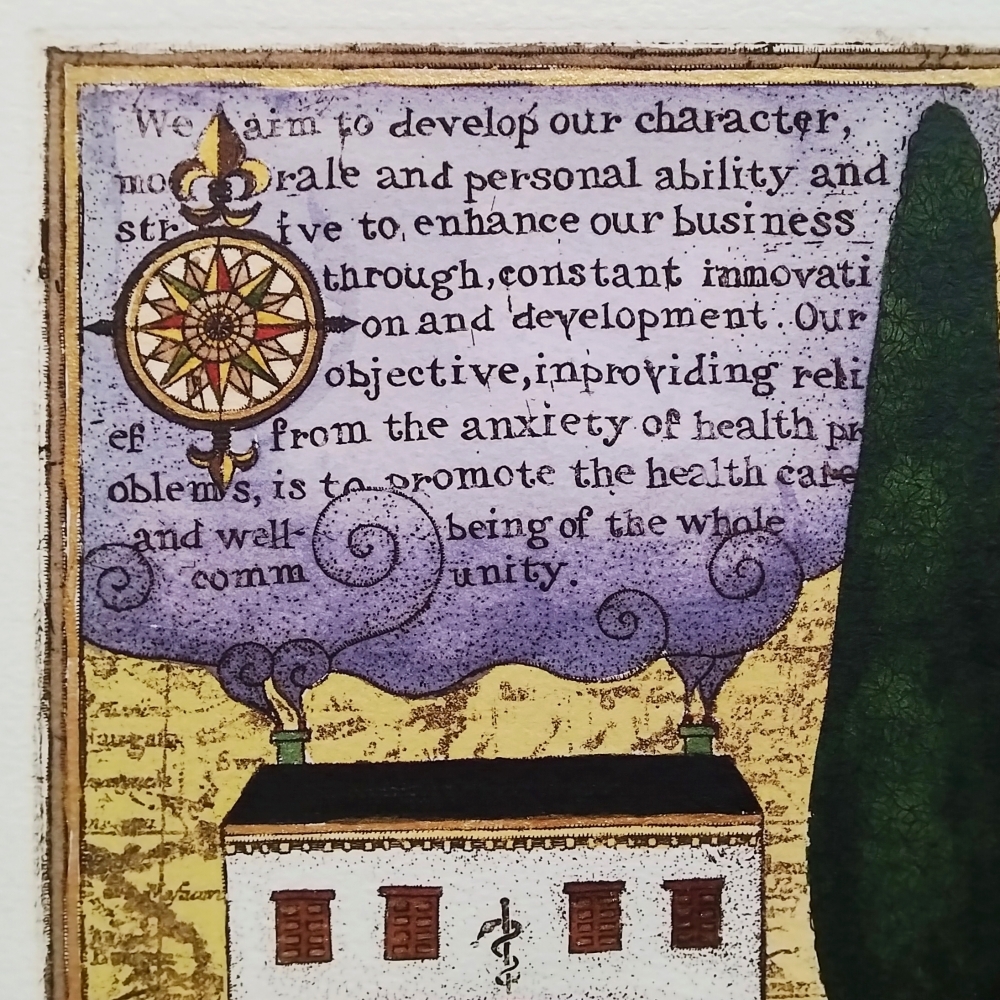 We aim to develop our character,
mo rale and personal ability and
str ive to enhance our business
through, constant innovati
on and development. Our
objective, inproviding reli
ef from the anxiety of health pr
oblem's, is to promote the health care
and well- being of the whole
comm unity.